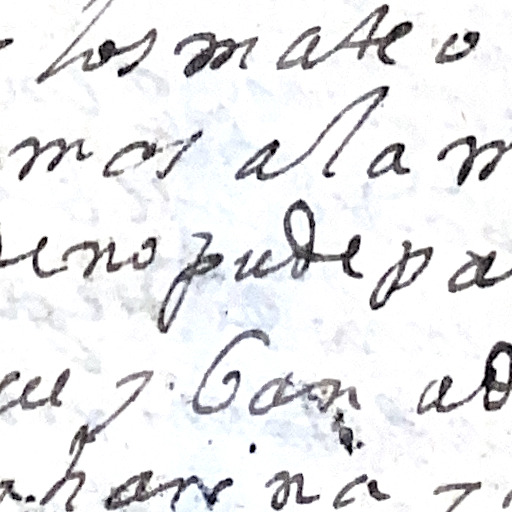 los mateo
mos ala m
e no pude pa
que y ban ad
harina y